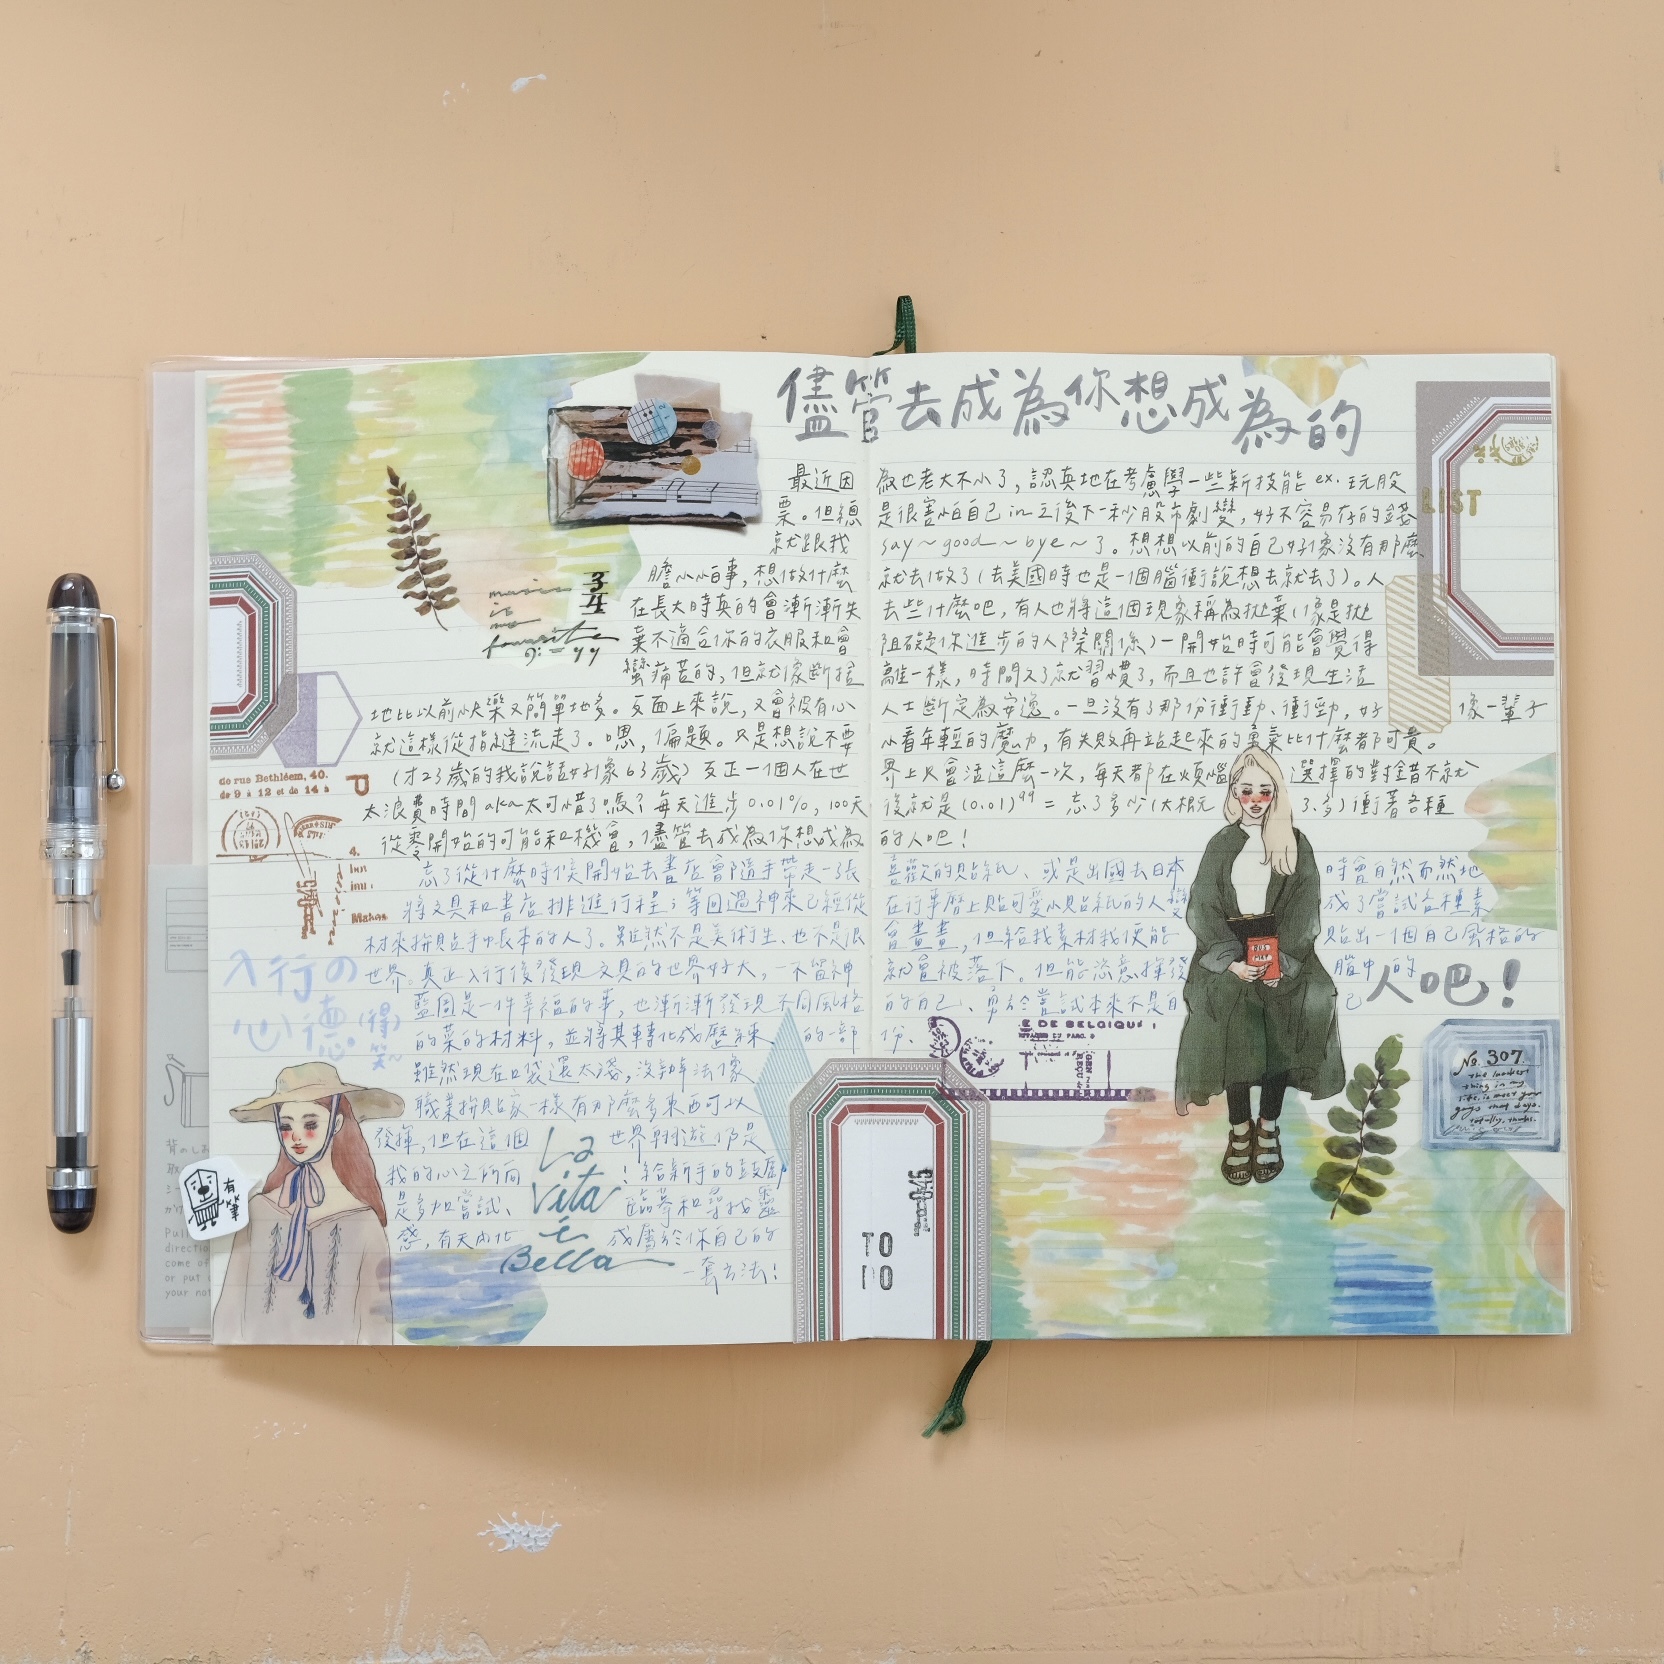 儘管去成為你想成為的
人吧!
最近因為也老大不小了,認真地在考慮學一些新技能 ex. 玩股
票。但總是很害怕自己 in 之後下一秒股市劇變,好不容易存的錢
就跟我 say~good~bye~了。想想以前的自己好像沒有那麼
膽小怕事,想做什麼就去做了(去美國時也是一個腦衝說想去就去了)。人
在長大時真的會漸漸失去些什麼吧,有人也將這個現象稱為拋棄(像是拋
棄不適合你的衣服和會阻礙你進步的人際關係)一開始時可能會覺得
蠻痛苦的,但就像斷捨離一樣,時間久了就習慣了,而且也許會發現生活
地比以前快樂又簡單地多。反面上來說,又會被有心人士斷定為安逸。一旦沒有了那份衝動、衝勁,好像一輩子
就這樣從指縫流走了。嗯,偏題。只是想說不要小看年輕的魔力,有失敗再站起來的勇氣比什麼都可貴。
(才23歲的我說話好像63歲)反正一個人在世界上只會活這麼一次,每天都在煩惱選擇的對錯不就
太浪費時間 aka 太可惜了嗎?每天進步0.01%,100天後就是(0.01)⁹⁹=忘了多少(大概元3.多)衝著各種
從零開始的可能和機會,儘管去成為你想成為的人吧!
入行の
心德。(得)
笑
忘了從什麼時候開始去書店會隨手帶走一張喜歡的貼紙、或是出國去日本時會自然而然地
將文具和書店排進行程;等回過神來已經從在行事曆上貼可愛小貼紙的人變成了嘗試各種素
材來拼貼手帳本的人了。雖然不是美術生、也不是很會畫畫,但給我素材我便能貼出一個自己風格的
世界。真正入行後發現文具的世界好大,一不留神就會被落下。但能恣意揮發腦中的
藍圖是一件幸福的事,也漸漸發現不同風格的自己、勇於嘗試本來不是自己
的菜的材料,並將其轉化成歷年來的一部份。
雖然現在口袋還太淺,沒辦法像
職業拼貼家一樣有那麼多東西可以
發揮,但在這個世界翱遊仍是
我的心之所向!給新手的鼓勵
是多加嘗試、臨摹和尋找靈
感,有天內化成屬於你自己的
一套方法!
music
is
my
favorite
3/4
de rue Bethléem, 40.
de 9 à 12 et de 14 à
P
4.
LIST
有
La
Vita
è
Bella
TO
DO
E DE BELGIQUE
No. 307
the luckiest
thing in my
life, is meet you
guys that days.
totally, thanks.
背のしお
取
か
Pull
directio
come of
or put
your not